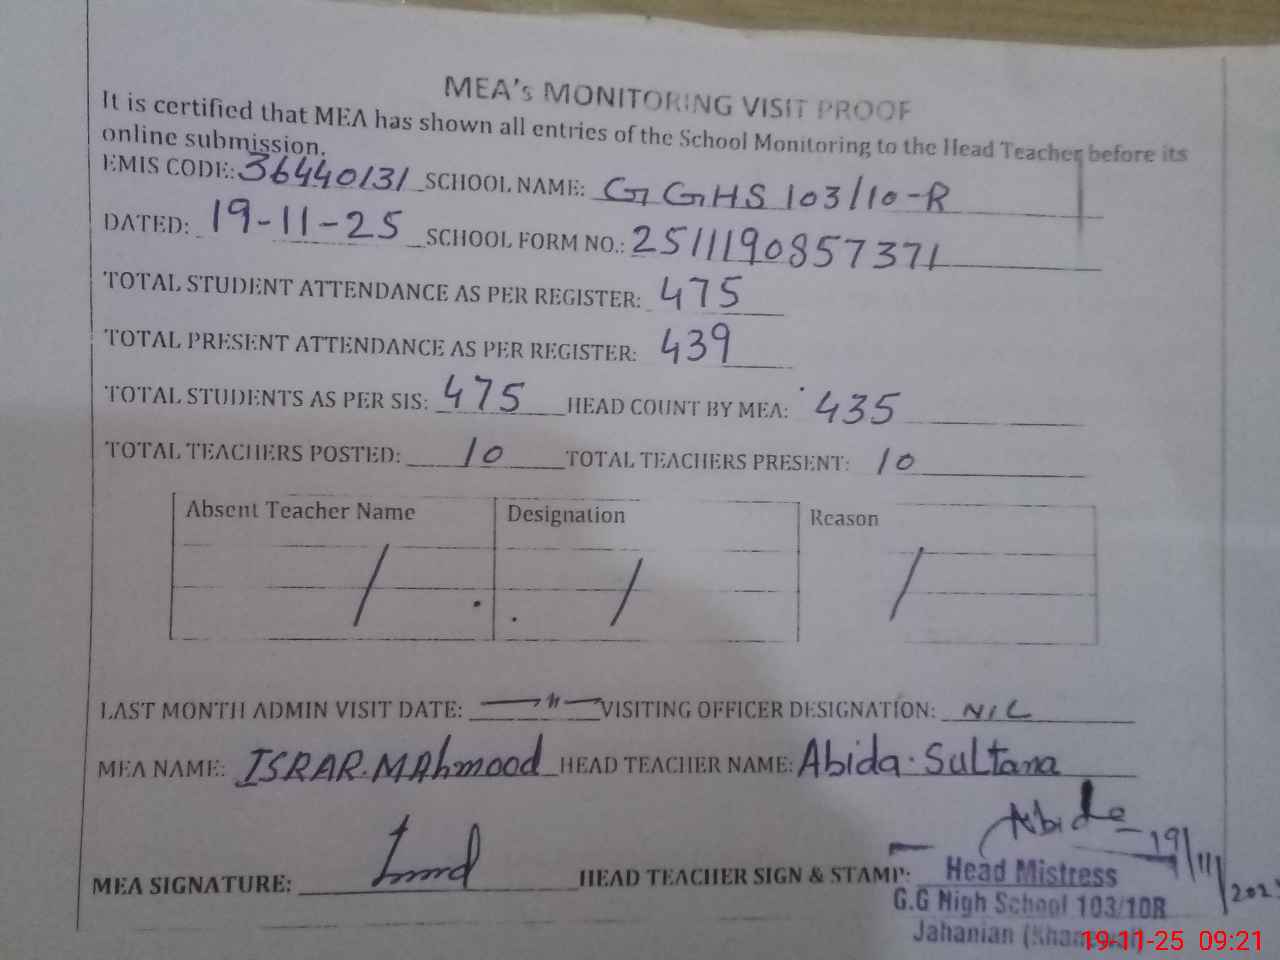 MEA's MONITORING VISIT PROOF
It is certified that MEA has shown all entries of the School Monitoring to the Head Teacher before its
online submission.
EMIS CODE: 36440131 SCHOOL NAME: GGHS 103/10-R
DATED: 19-11-25 SCHOOL FORM NO.: 2511190857371
TOTAL STUDENT ATTENDANCE AS PER REGISTER: 475
TOTAL PRESENT ATTENDANCE AS PER REGISTER: 439
TOTAL STUDENTS AS PER SIS: 475 HEAD COUNT BY MEA: 435
TOTAL TEACHERS POSTED: 10 TOTAL TEACHERS PRESENT: 10
Absent Teacher Name Designation Reason
/ / /
LAST MONTH ADMIN VISIT DATE: VISITING OFFICER DESIGNATION: NIL
MEA NAME: ISRAR.MAhmood HEAD TEACHER NAME: Abida.Sultana
Abida
19/11/2025
MEA SIGNATURE: HEAD TEACHER SIGN & STAMP:
Head Mistress
G.G High School 103/10R
Jahanian (Khanewal)
19-11-25 09:21